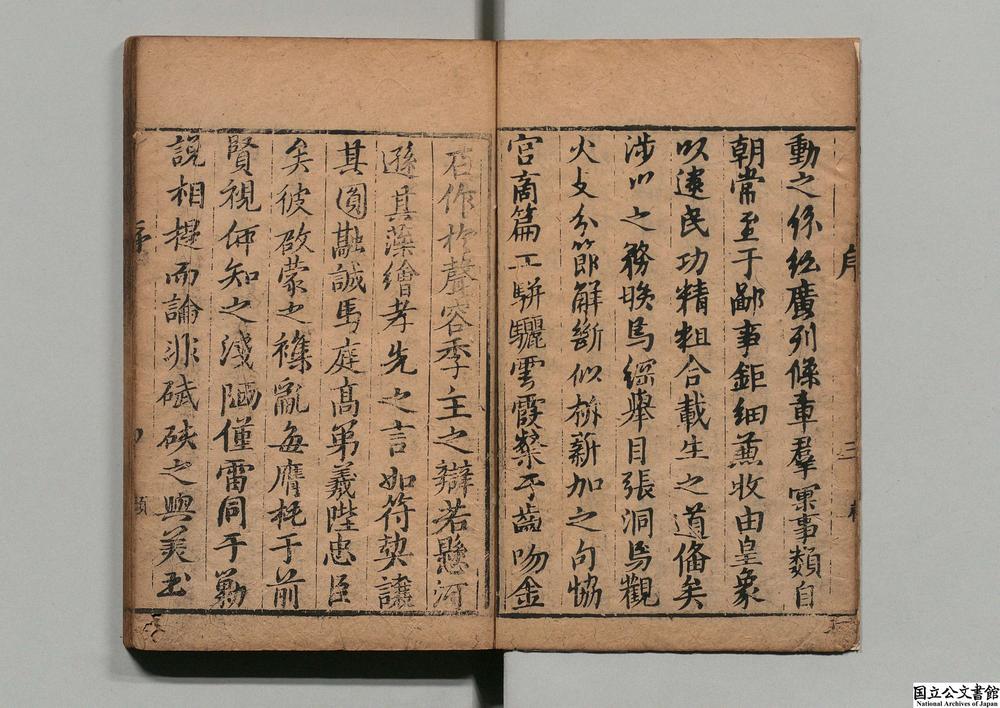 動之係紀廣列條章羣寓事類自
朝常至于鄙事鉅細兼收由皇象
以逮民功精粗合載生之道備矣
涉以之務映焉綜舉目張洞焉觀
火支分節解斷似析薪加之句協
宮商篇工駢驪雲霞粲乎齒吻金
石作於聲容季主之辯若懸河
遜其藻繪孝先之言如符契讓
其圓融誠馬庭高第義陛忠臣
矣彼啟蒙之襍亂每膺梔于前
賢視何知之淺陋僅雷同于勦
說相提而論非碔砆之與美玉
序
三
序
國立公文書館
National Archives of Japan